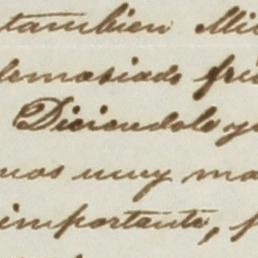 tambien Mi
demasiado fri
Diciendole y
nos muy ma
importante, f